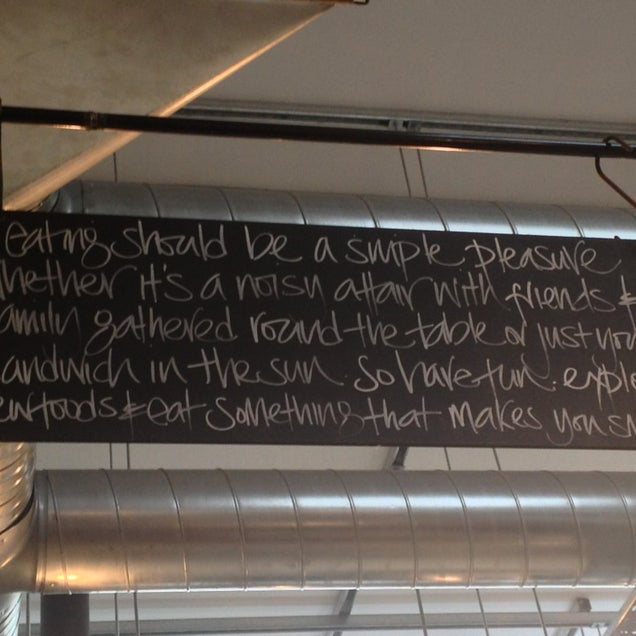 eating should be a simple pleasure
whether it's a noisy affair with friends &
family gathered round the table or just you
sandwich in the sun. So have fun. explo
ew foods & eat something that makes you sm